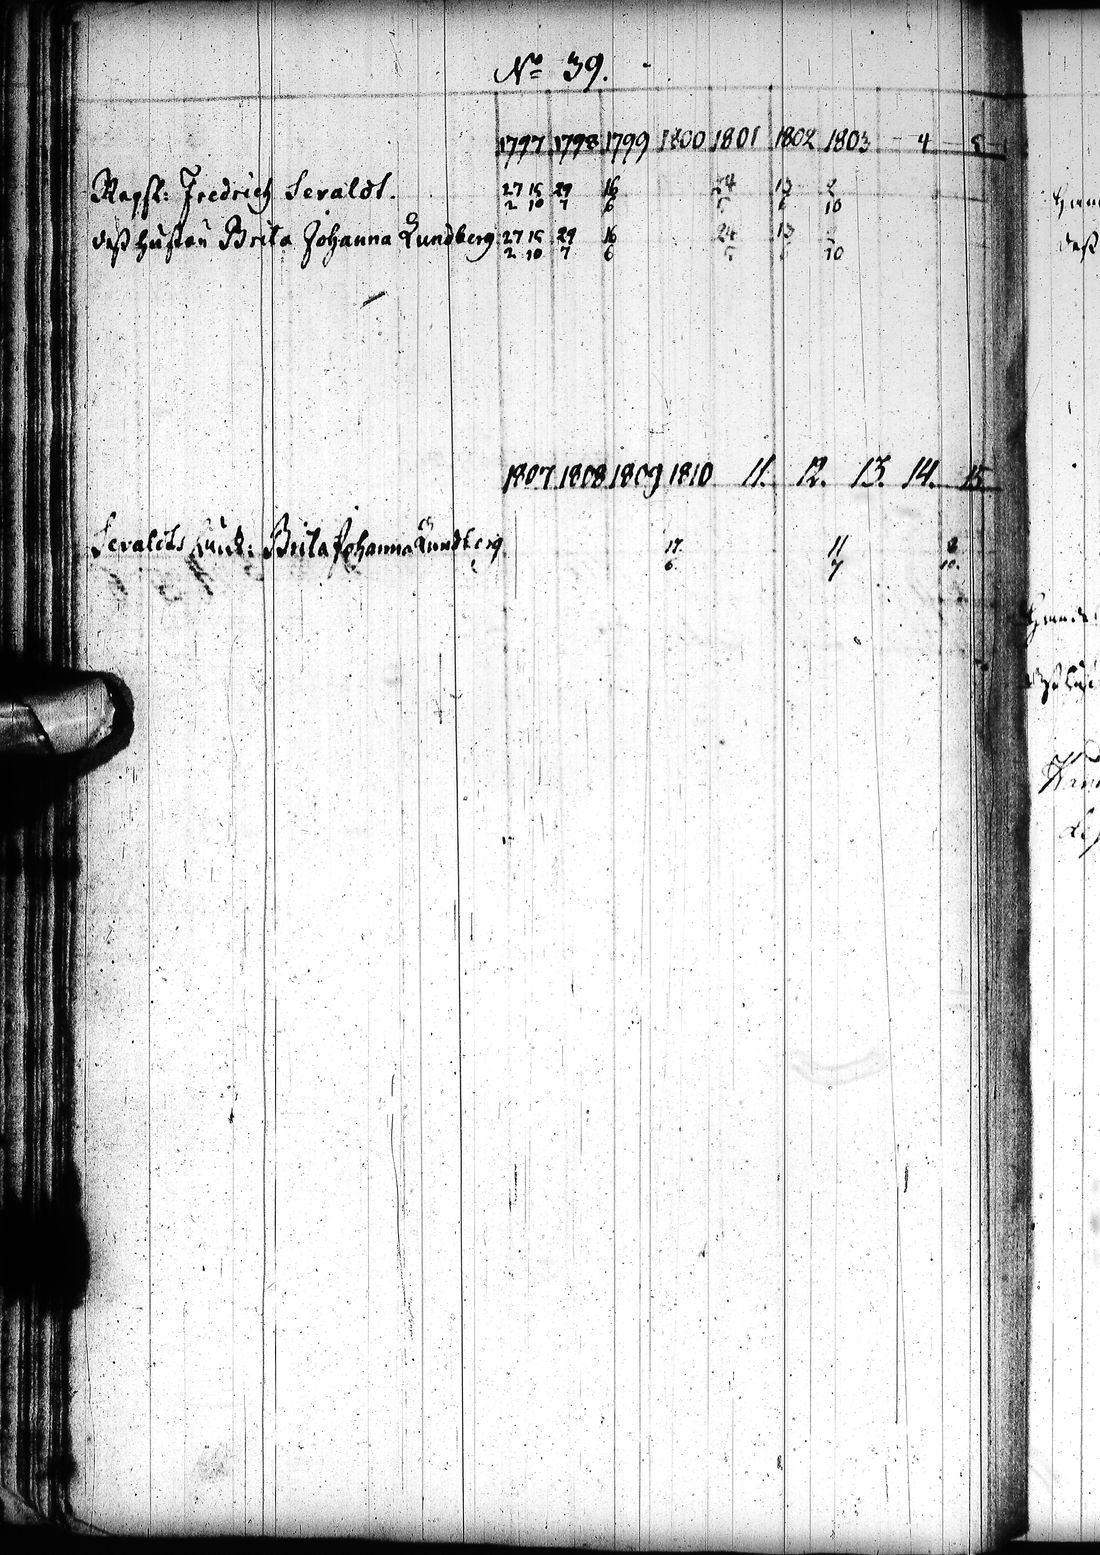 No 39.
1797 1798 1799 1800 1801 1802 1803 4 5
Fredrich Sevaldt.
27 15 29 16 24 13 2
2 10 7 6 5 6 10
deß hustru Brita Johanna Lundberg 27 15 29 16 24 13 2
2 10 7 6 5 6 10
1807 1808 1809 1810 11. 12. 13. 14. 15
Sevaldts Brita Johanna Lundberg 17. 11 2
6 7 10.
deß